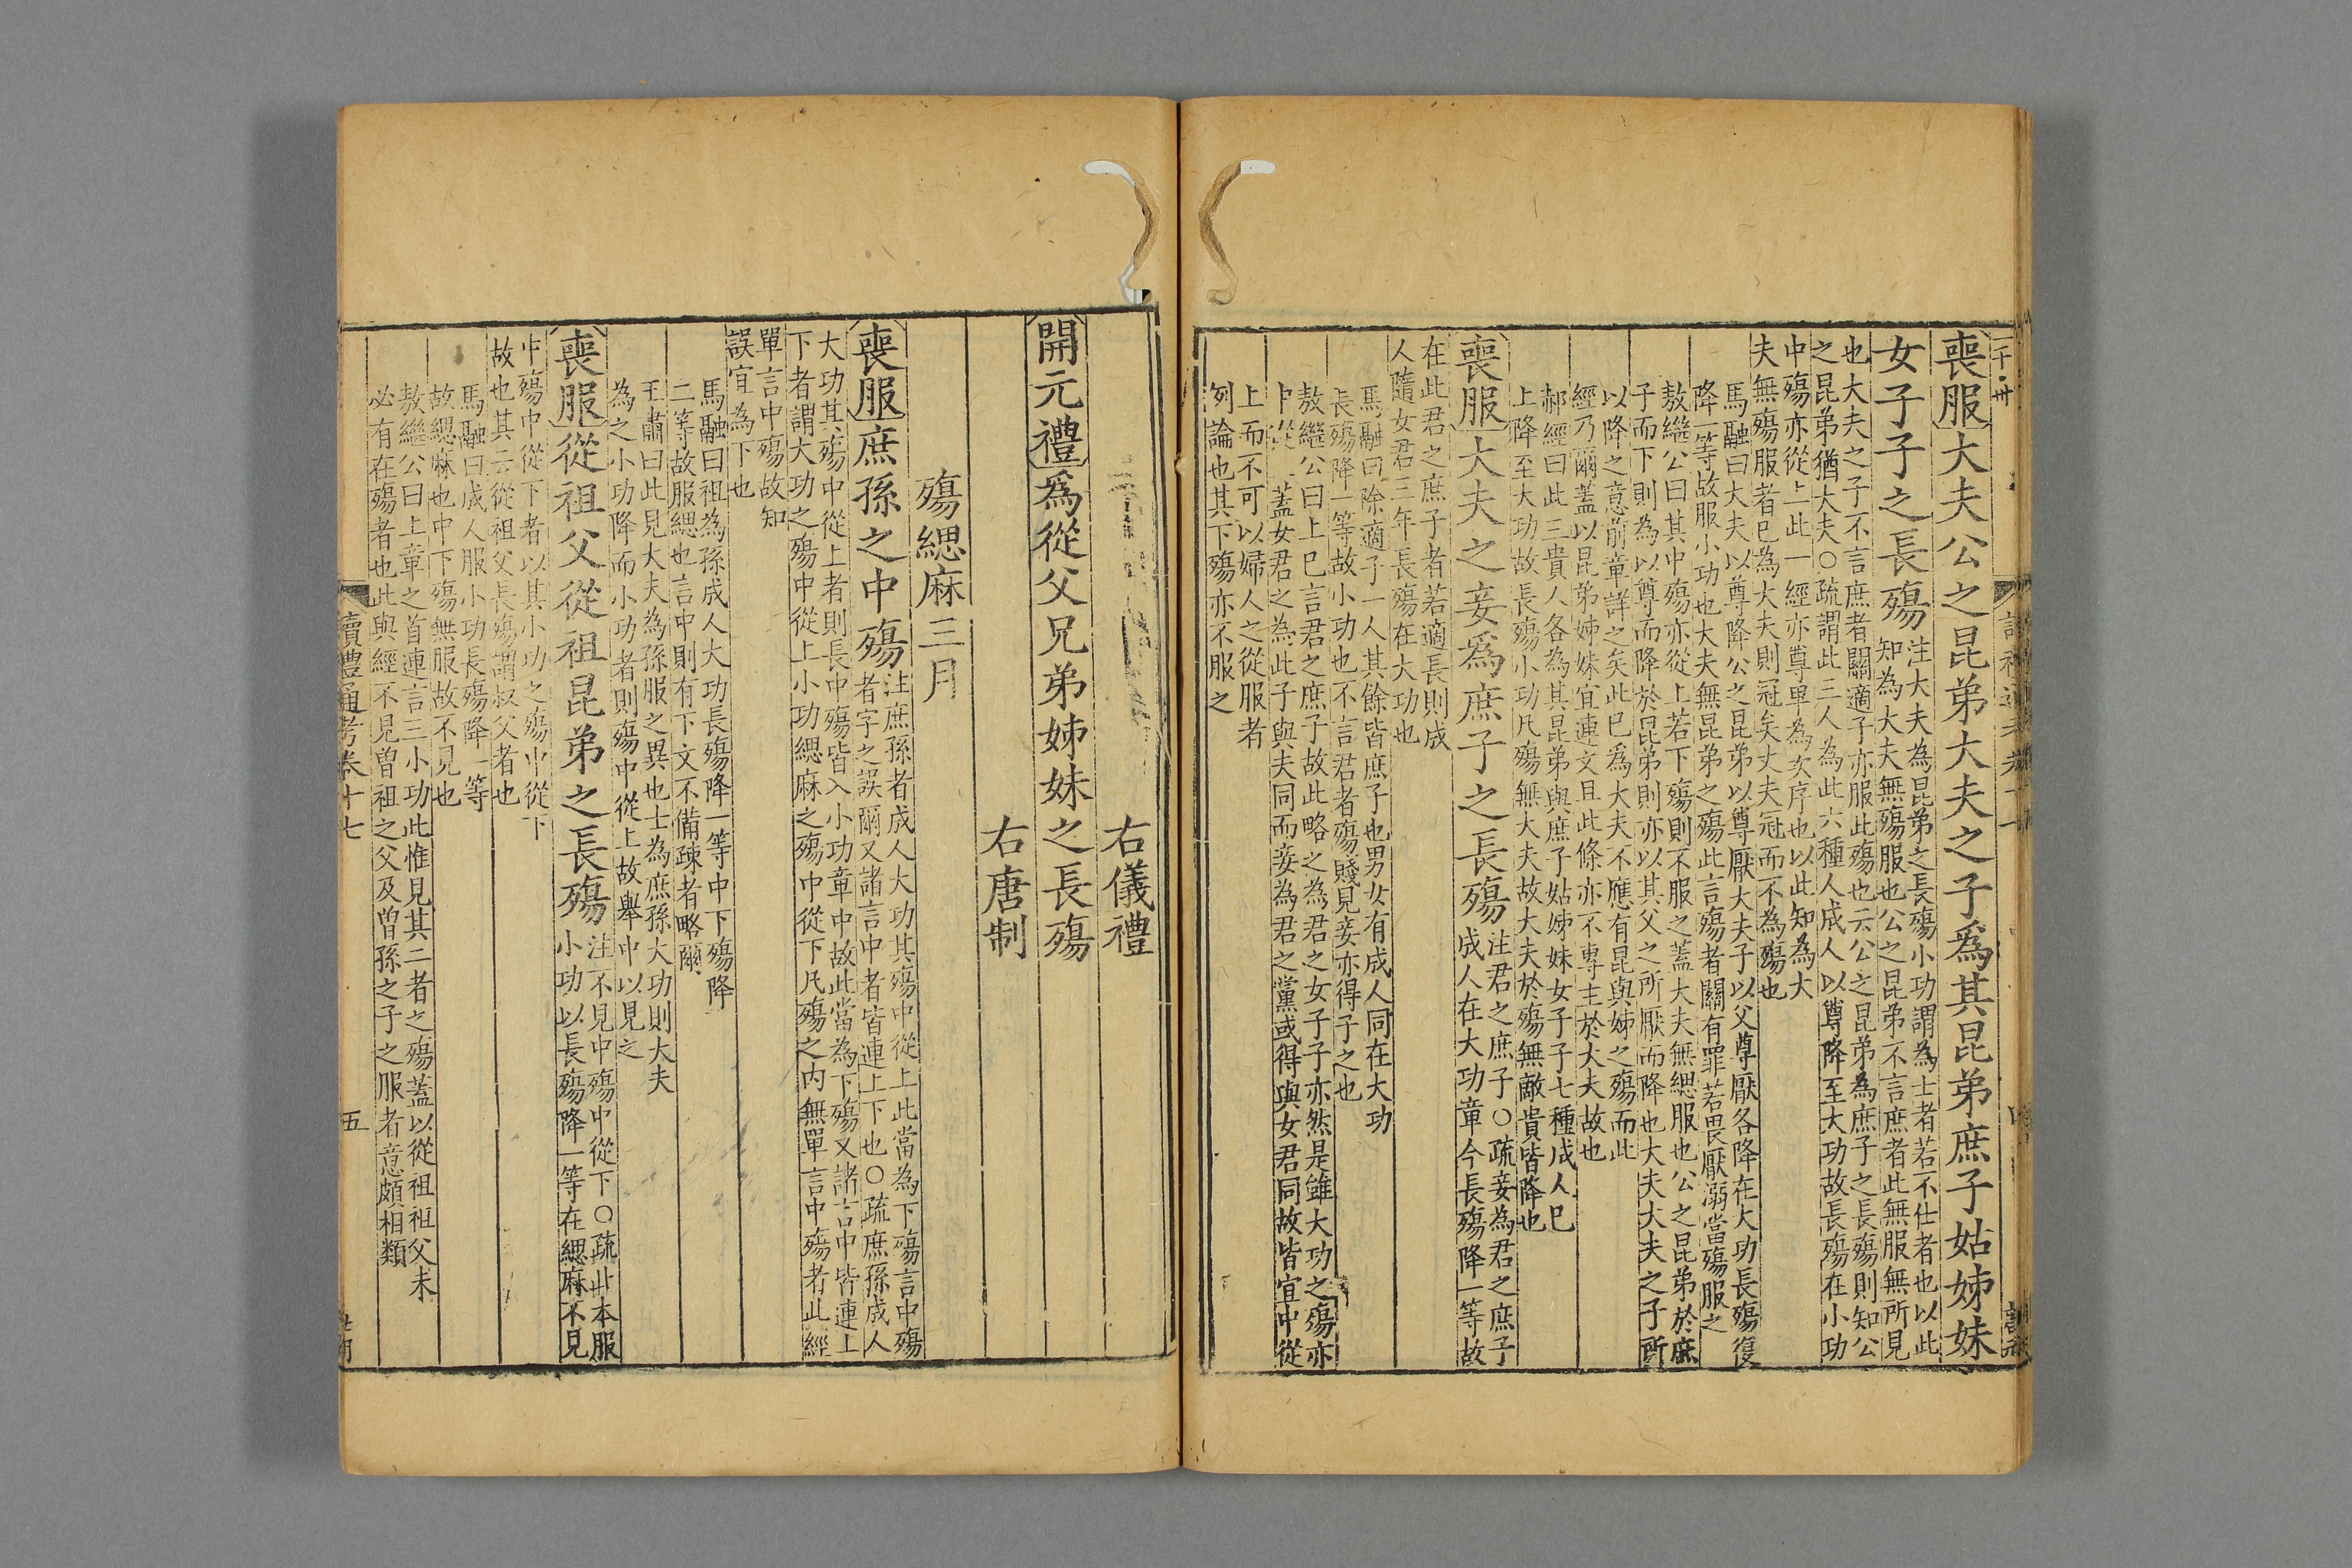 喪服大夫公之昆弟大夫之子爲其昆弟庶子姑姊妹
女子子之長殤
注大夫為昆弟之長殤小功謂為士者若不仕者也以此
知為大夫無殤服也公之昆弟不言庶者此無服無所見
也大夫之子不言庶者關適子亦服此殤也云公之昆弟為庶子之長殤則知公
之昆弟猶大夫○疏謂此三人為此六種人成人以尊降至大功故長殤在小功
中殤亦從上此一經亦尊卑為次序也以此知為大
夫無殤服者已為大夫則冠矣丈夫冠而不為殤也
馬融曰大夫以尊降公之昆弟以尊厭大夫子以父尊厭各降在大功長殤復
降一等故服小功也大夫無昆弟之殤此言殤者關有罪若畏厭溺當殤服之
敖繼公曰其中殤亦從上若下殤則不服之蓋大夫無緦服也公之昆弟於庶
子而下則為以尊而降於昆弟則亦以其父之所厭而降也大夫大夫之子所
以降之意前章詳之矣此已爲大夫不應有昆與姊之殤而此
經乃爾蓋以昆弟姊妹宜連文且此條亦不專主於大夫故也
郝經曰此三貴人各為其昆弟與庶子姑姊妹女子子七種成人已
上降至大功故長殤小功凡殤無大夫故大夫於殤無敵貴皆降也
喪服大夫之妾爲庶子之長殤
注君之庶子○疏妾為君之庶子
成人在大功章今長殤降一等故
在此君之庶子者若適長則成
人隨女君三年長殤在大功也
馬融曰除適子一人其餘皆庶子也男女有成人同在大功
長殤降一等故小功也不言君者殤賤見妾亦得子之也
敖繼公曰上已言君之庶子故此略之為君之女子子亦然是雖大功之殤亦
中從上蓋女君之為此子與夫同而妾為君之黨或得與女君同故皆宜中從
上而不可以婦人之從服者
例論也其下殤亦不服之
右儀禮
開元禮爲從父兄弟姊妹之長殤
右唐制
殤緦麻三月
喪服庶孫之中殤
注庶孫者成人大功其殤中從上此當為下殤言中殤
者字之誤爾又諸言中者皆連上下也○疏庶孫成人
大功其殤中從上者則長中殤皆入小功章中故此當為下殤又諸言中皆連上
下者謂大功之殤中從上小功緦麻之殤中從下凡殤之内無單言中殤者此經
單言中殤故知
誤宜為下也
馬融曰祖為孫成人大功長殤降一等中下殤降
二等故服緦也言中則有下文不備疎者略爾
王肅曰此見大夫為孫服之異也士為庶孫大功則大夫
為之小功降而小功者則殤中從上故舉中以見之
喪服從祖父從祖昆弟之長殤
注不見中殤中從下○疏此本服
小功以長殤降一等在緦麻不見
中殤中從下者以其小功之殤中從下
故也其云從祖父長殤謂叔父者也
馬融曰成人服小功長殤降一等
故緦麻也中下殤無服故不見也
敖繼公曰上章之首連言三小功此惟見其二者之殤蓋以從祖祖父未
必有在殤者也此與經不見曾祖之父及曾孫之子之服者意頗相類
讀禮通考卷十七
五